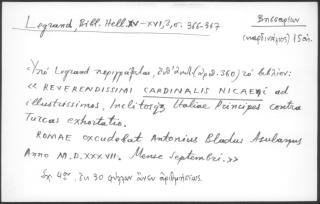 Legrand, Bibl. Hell. XV-XVI, 3, σ. 366-367
Βησσαρίων
(καρδινάλιος) 150λ.
Legrand περιγράφεται, (ἀρ. 360) τὸ βιβλίον:
« REVERENDISSIMI CARDINALIS NICAENI ad
illustrissimos, Inclitosq; Italiae Principes contra
Turcas exhortatio.
ROMAE excudebat Antonius Bladus Asulanus
Anno M.D.XXXVII. Mense Septembri.»
Σχ. 4ον, ἐκ 30 φύλλων ἄνευ ἀριθμήσεως.